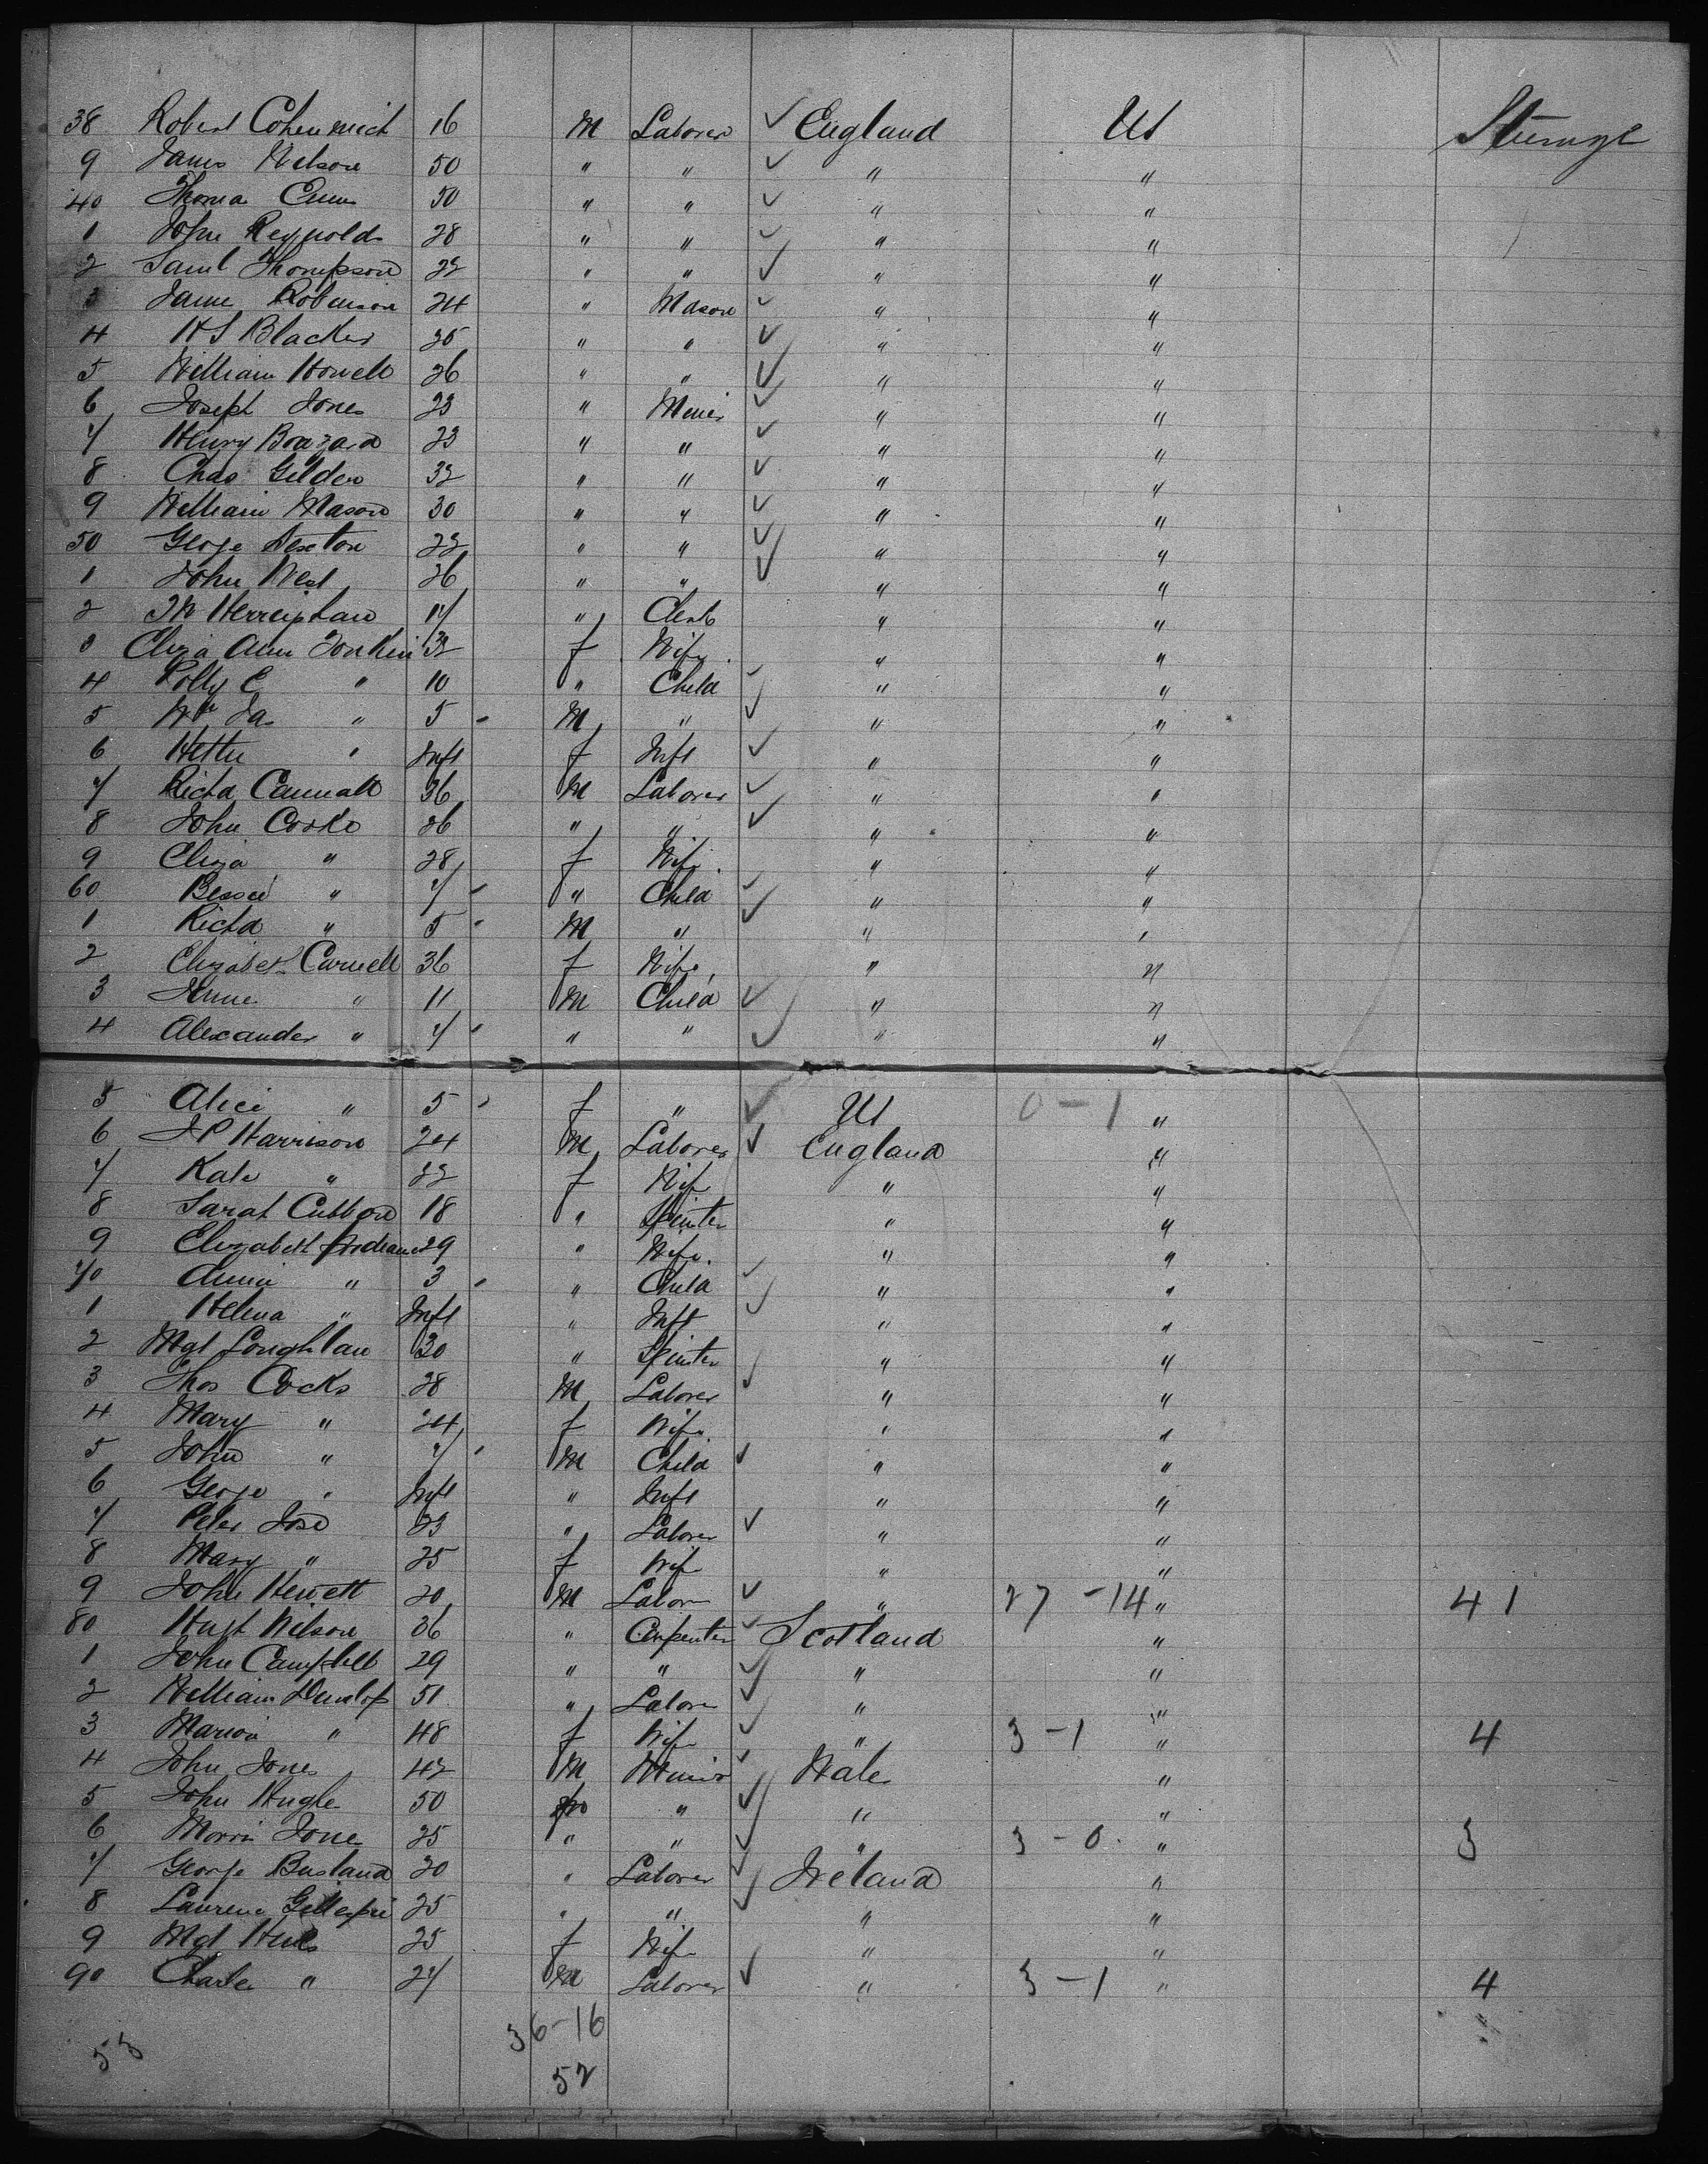 38 Robert Cohenmich 16 M Laborer ✓ England US Steerage
9 James Nelson 50 " " ✓ " "
40 Thoma 50 " " ✓ " "
1 John Reynolds 28 " " ✓ " "
2 Saml Thompson 22 " " ✓ " "
3 Jame Robinson 24 " Mason ✓ " "
4 H S Blacker 25 " " ✓ " "
5 William Howell 26 " " ✓ " "
6 Joseph Jones 23 " Miner ✓ " "
7 Henry Bozzard 23 " " ✓ " "
8 Chas Gilders 32 " " ✓ " "
9 William Mason 30 " " ✓ " "
50 George Sexton 22 " " ✓ " "
1 John West 26 " " ✓ " "
2 17 " Clerk " "
3 Eliza Ann Tonkin 32 f Wife " "
4 Polly E " 10 " Child ✓ " "
5 Wm Jas " 5 - M " ✓ " "
6 Hettie " Inft f Inft ✓ " "
7 Richd Cannall 36 M Laborer ✓ " "
8 John Corke 26 " " ✓ " "
9 Eliza " 28 f Wife " "
60 Bessie " 7 - " Child ✓ " "
1 Richd " 5 - M " ✓ " "
2 Elizabeth Carnell 36 f Wife " "
3 " 11 M Child ✓ " "
4 Alexander " 7 - " " ✓ " "
5 Alice " 5 - f " ✓ US 0-1 "
6 J P Harrison 24 M Laborer ✓ England "
7 Kate " 22 f Wife " "
8 Sarah Cubbon 18 " Spinster " "
9 Elizabeth 29 " Wife " "
70 Annie " 3 - " Child ✓ " "
1 Helena " Inft " Inft ✓ " "
2 Mgt Loughlan 30 " Spinster " "
3 Thos Cocks 28 M Laborer ✓ " "
4 Mary " 24 f Wife " "
5 John " 7 - M Child ✓ " "
6 George " Inft " Inft " "
7 Peter Jose 23 " Laborer ✓ " "
8 Mary " 25 f Wife " "
9 John Hewett 20 M Labor ✓ " 27-14 " 41
80 Hugh Wilson 36 " Carpenter ✓ Scotland "
1 John Campbell 29 " " ✓ " "
2 William Dunlop 51 " Labor ✓ " "
3 Marion " 48 f Wife ✓ " 3-1 " 4
4 John Jones 42 M Miner ✓ Wales "
5 John Hughe 50 " ✓ " "
6 Morris Jone 25 " " ✓ " 3-0 " 3
7 George Busland 20 " Laborer ✓ Ireland "
8 Laurence Gillespie 25 " " ✓ " "
9 Mgt 25 f Wife " "
90 Charles " 27 M Laborer ✓ " 3-1 " 4
53 36-16
52